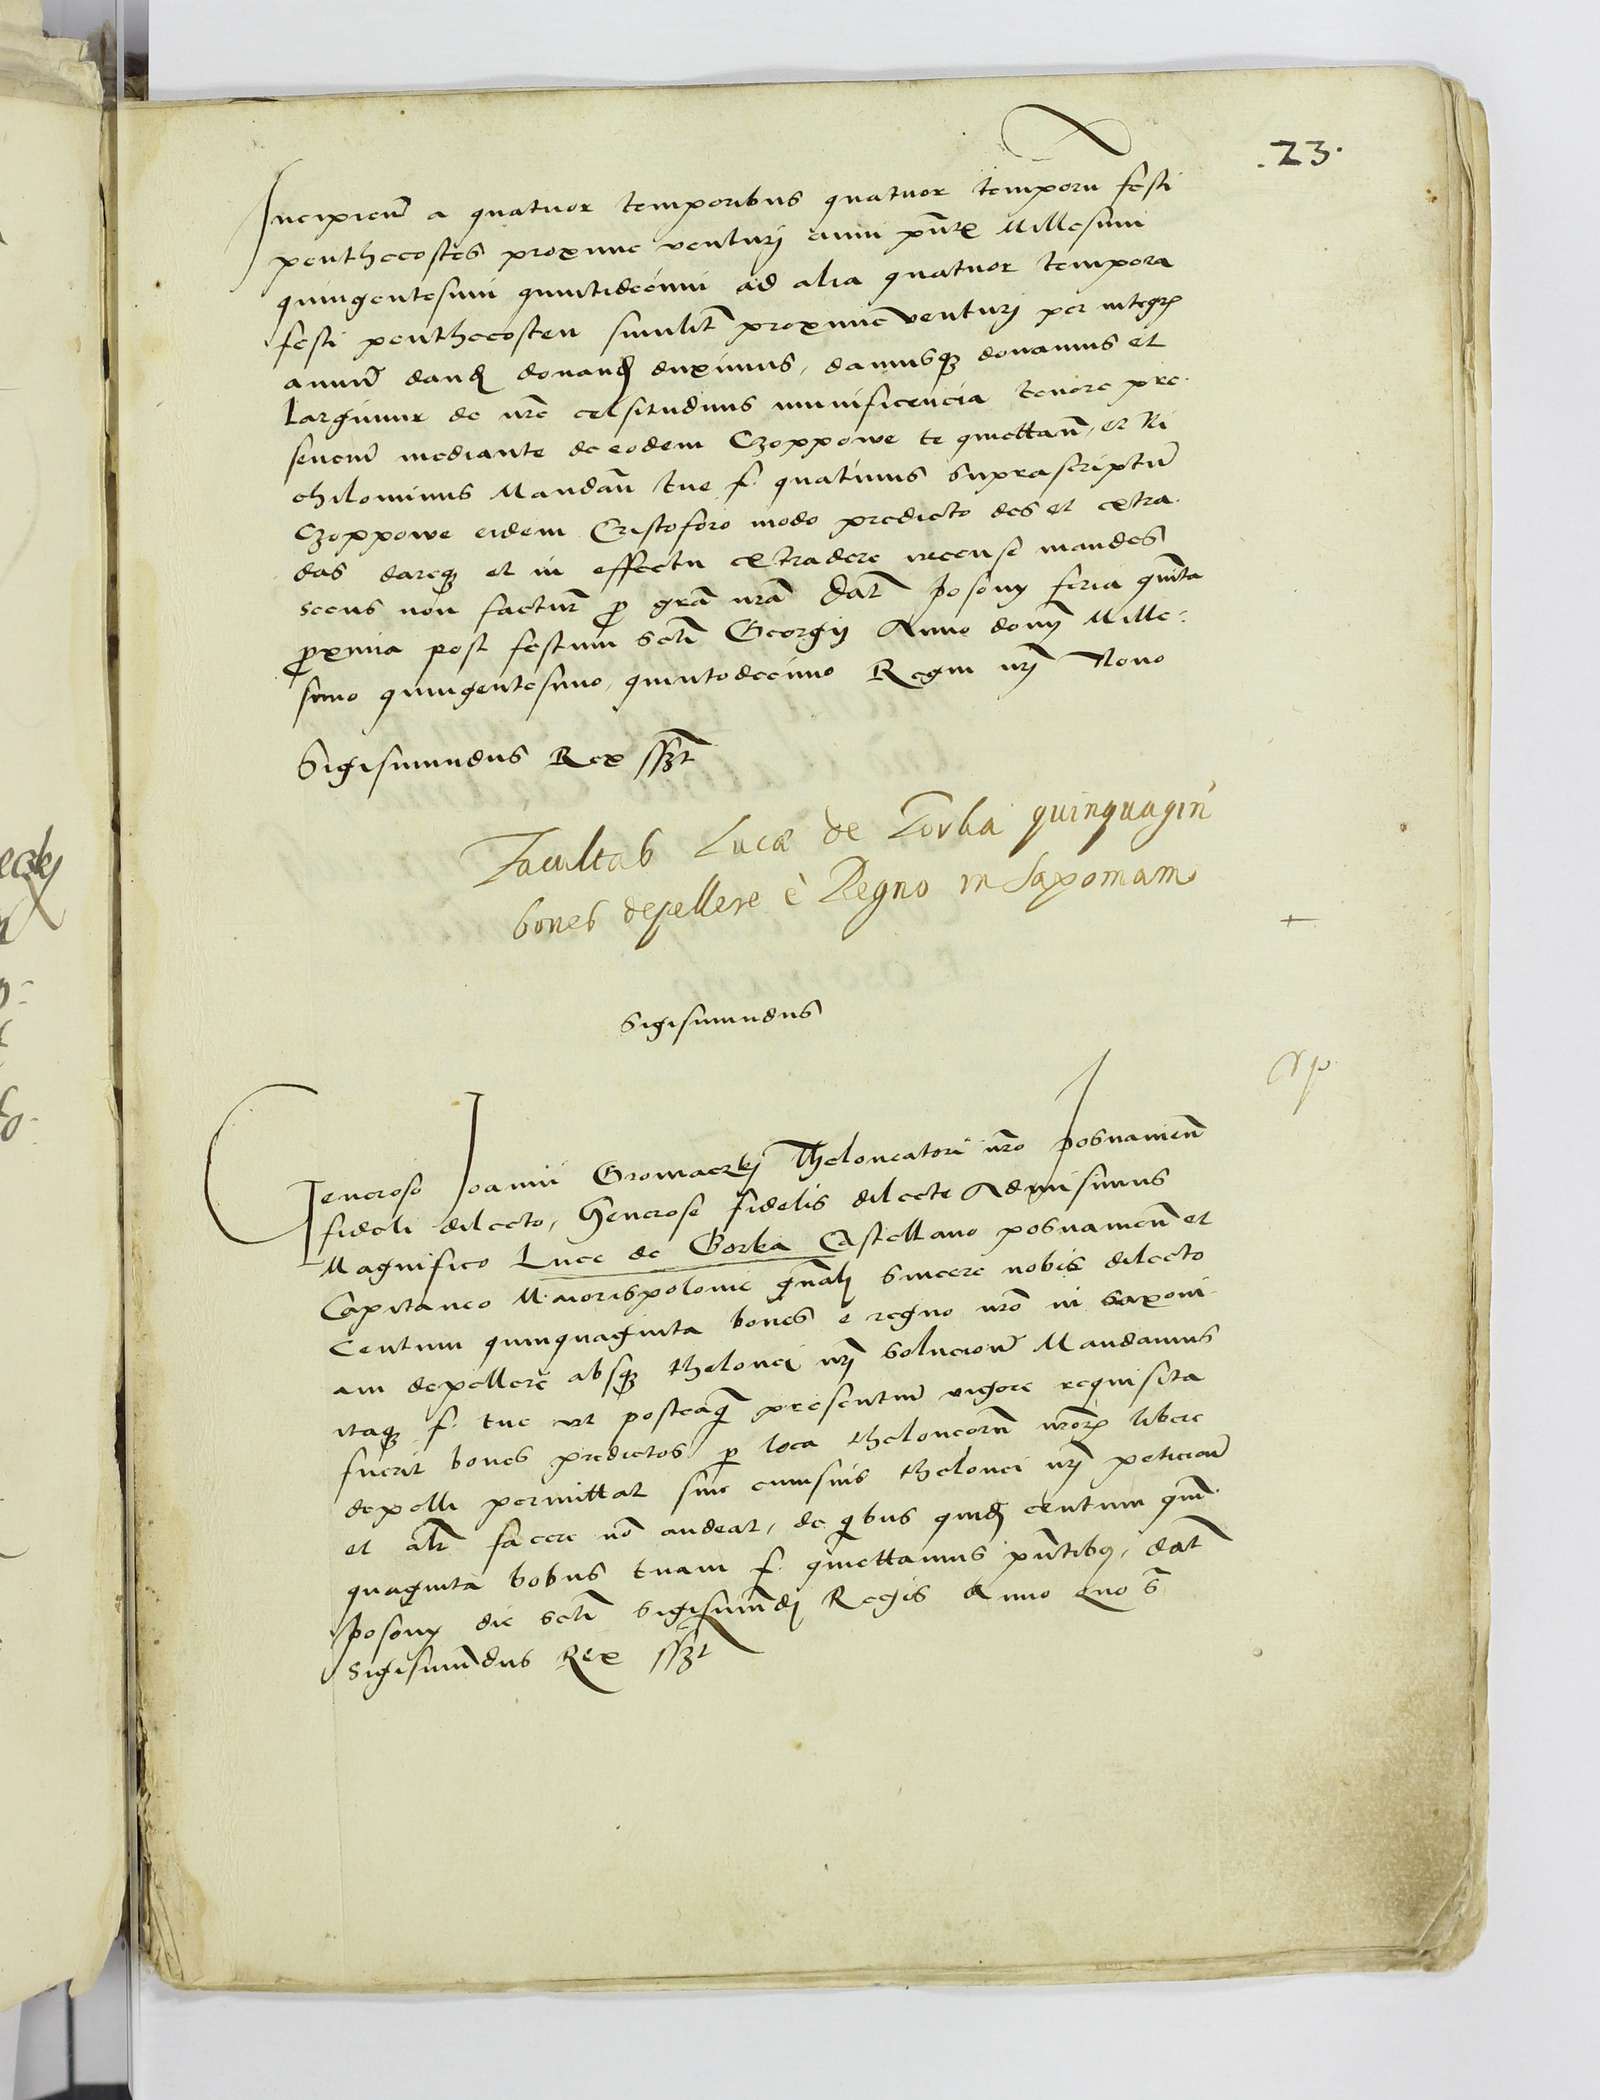 .23.
Incipien̄ a quatuor temporibus quatuor temporū festi
penthecostes proxime venturi anni pn̄tis Millesimi
quingentesimi quintidecimi ad alia quatuor tempora
festi penthecosten similit̄ proxime venturi per integrū
annū dand donand duximus, damusq̄ donamus et
largimur de nr̄e celsitudinis munificencia tenore pre
senciū mediante de eodem Czoppowe te quittan̄, et Ni
chilominus Mandan̄ tue f. quatinus suprascriptū
Czoppowe eidem Cristoforo modo predicto des et extra
das dareq̄ et in effectu extradere necense mandes
secus non factur̄ p̄ gr̄a nr̄a Dat̄ Posony feria quīta
p̄xima post festum scti Georgij Anno domj Mille:
simo quingentesimo, quintodecimo Regni nrj Nono
Sigismundus Rex sszt
Facultas Lucæ de Gorka quinquagin
boues depellere è Regno in Saxoniam
Sigismundus
Generoso Joanni Gromaczkj Theloneatori nr̄o Posnanien̄
fideli dilecto, Generose fidelis dilecte Admisimus
Magnifico Luce de Gorka Castellano posnanien̄ et
Capitaneo Maiorispolonie gn̄ali sincere nobis dilecto
Centum quinquaginta boues e regno nr̄o in saxoni
am depellere absq̄ thelonei nrj solucione Mandamus
itaq̄ f. tue ut posteaq̄ presentium vigore requisita
fuerit boues predictos p̄ loca theloneorū nr̄orū libere
depelli permittat sine cuiusuis thelonei nrj peticione
et alr̄ facere no audeat, de q̄bus quid centum quin
quaginta bobus tuam f. quittamus pn̄tibꝫ, Dat̄
Posony die scti Sigismūdj Regis Anno quo s̄
Sigismūdus Rex sszt